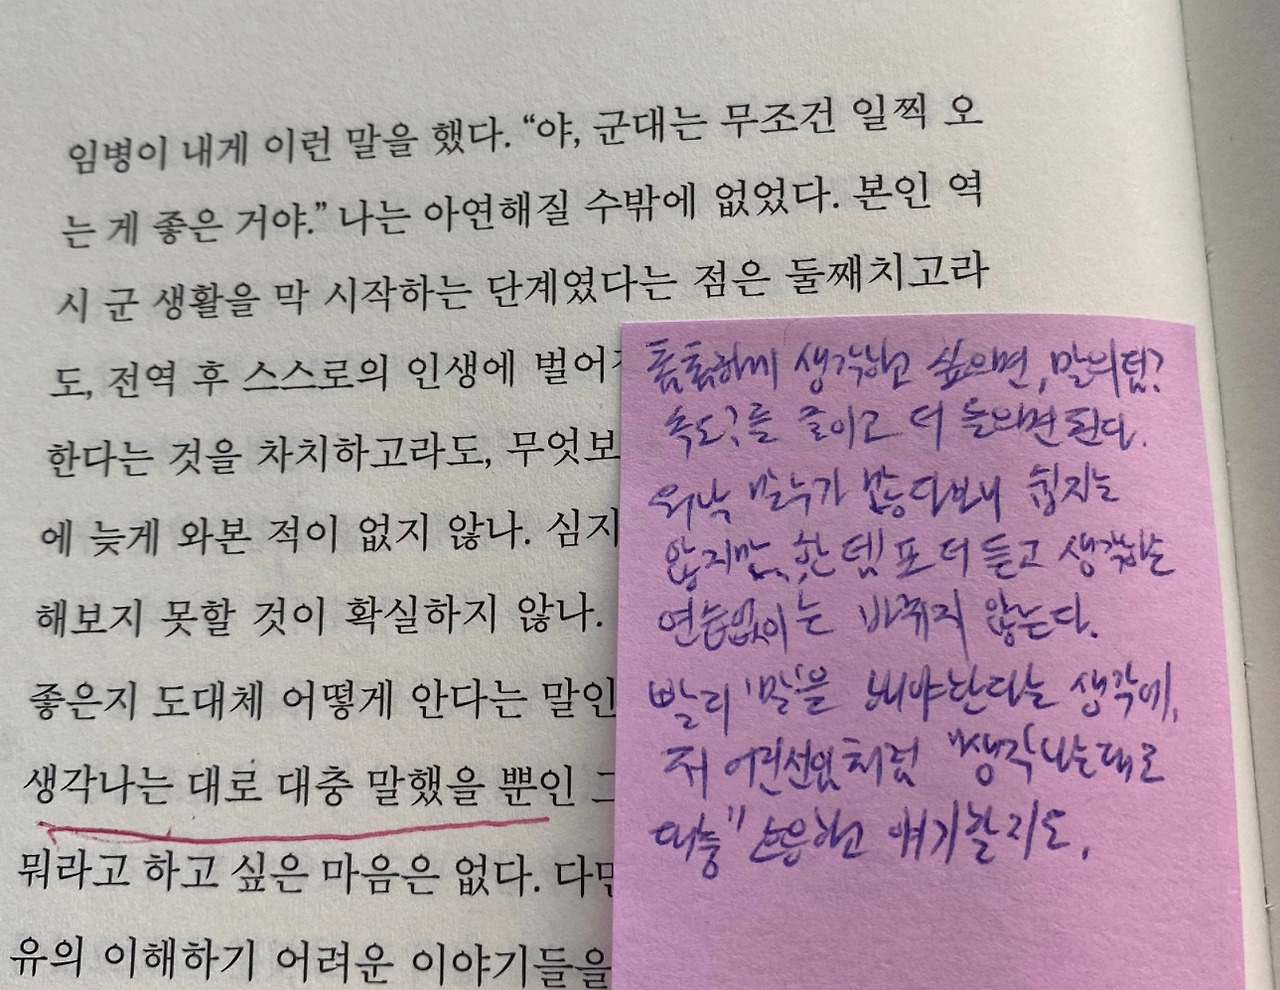 임병이 내게 이런 말을 했다. “야, 군대는 무조건 일찍 오
는 게 좋은 거야.” 나는 아연해질 수밖에 없었다. 본인 역
시 군 생활을 막 시작하는 단계였다는 점은 둘째치고라
도, 전역 후 스스로의 인생에 벌어
한다는 것을 차치하고라도, 무엇보
에 늦게 와본 적이 없지 않나. 심지
해보지 못할 것이 확실하지 않나.
좋은지 도대체 어떻게 안다는 말인
생각나는 대로 대충 말했을 뿐인 그
뭐라고 하고 싶은 마음은 없다. 다만
유의 이해하기 어려운 이야기들을
촘촘하게 생각하고 싶으면, 말의텀?
속도?를 줄이고 더 들으면된다.
워낙 말수가 많다보니 쉽지는
않지만, 한 템포 더 듣고 생각하는
연습없이는 바뀌지 않는다.
빨리 '말'을 해야한다는 생각에,
저 어린선임처럼 "생각나는대로
대충" 하고 얘기할지도.